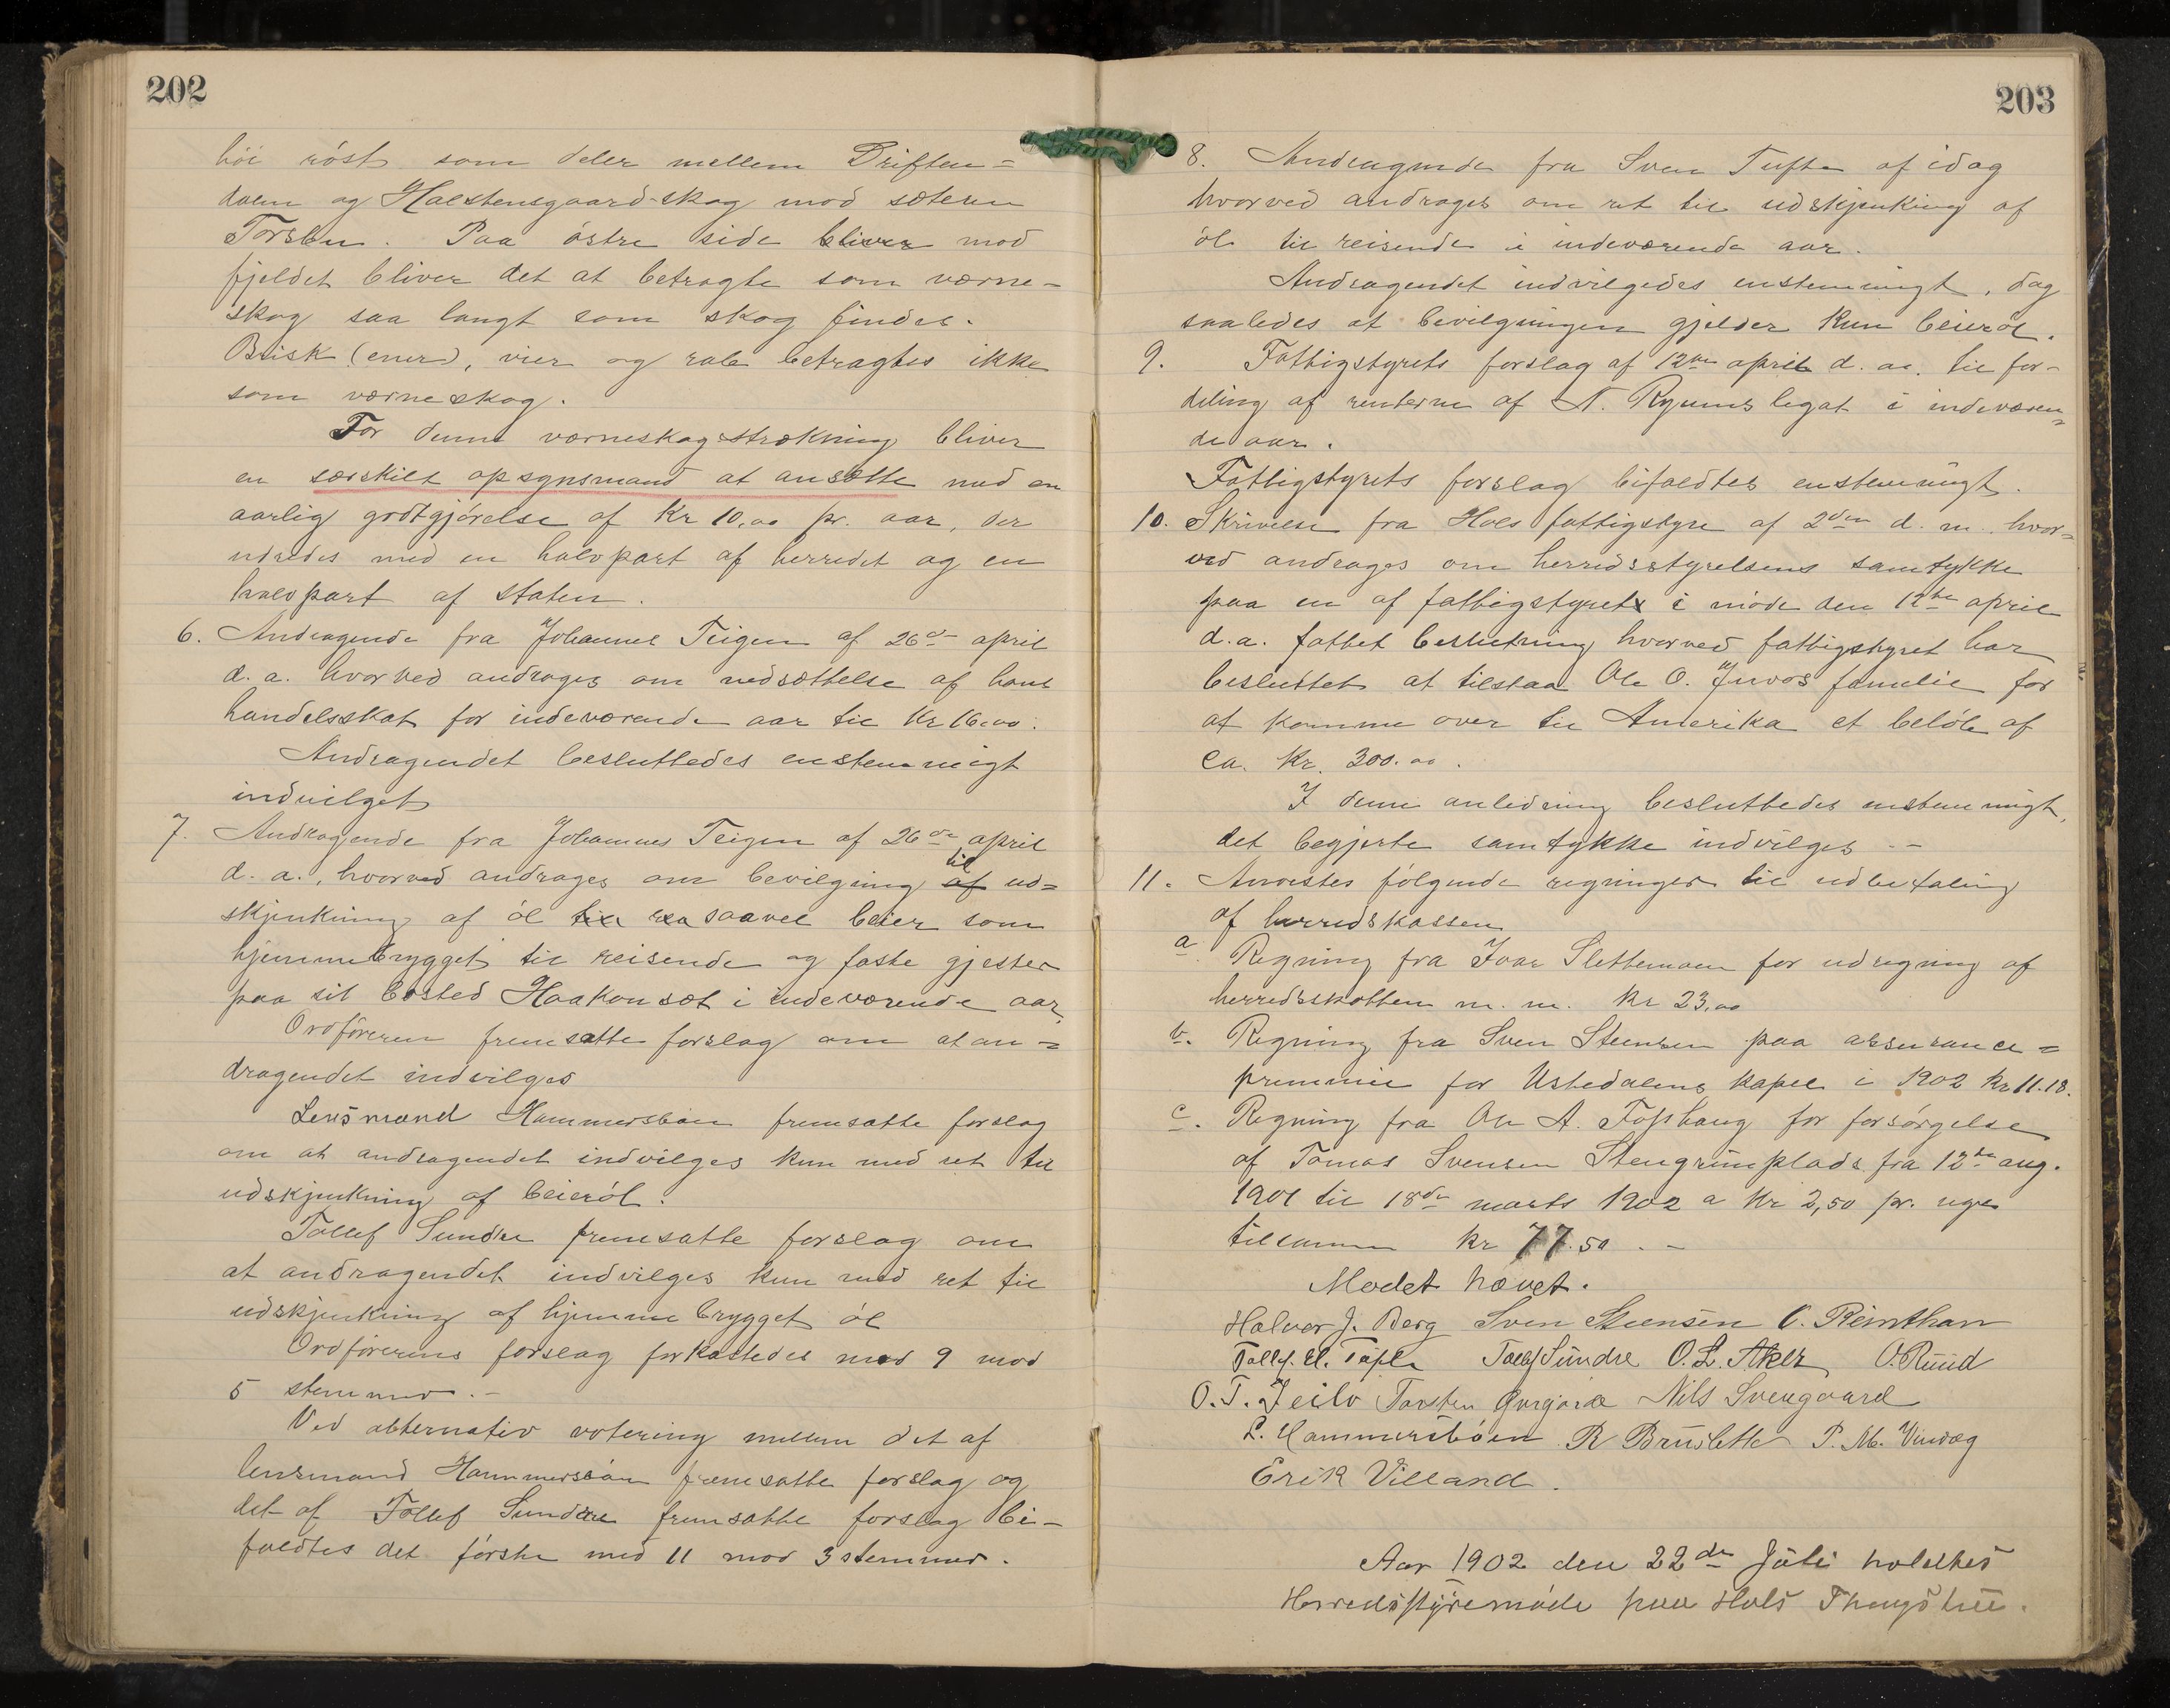 202
höi röst som deler mellem Driften=
dalen og Halstensgaard-skog mod sæteren
Torsbu. Paa östre side bliver mod
fjeldet bliver det at betragte som værne-
skog saa langt som skog findes.
Brisk (ener), vier og rab betragtes ikke
som værneskog.
For denne værneskogstrækning bliver
en særskilt opsynsmand at ansætte med en
aarlig godtgjörelse af Kr 10,00 pr. aar, der
udredes med en halvpart af herredet og en
halvpart af staten.
6. Andragende fra Johannes Teigen af 26de april
d. a. hvorved andrages om nedsættelse af hans
handelsskat for indeværende aar til Kr 16.00.
Andragendet besluttedes enstemmigt
indvilget
7. Andragende fra Johannes Teigen af 26de april
d. a., hvorved andrages om bevilgning af til ud=
skjenkning af öl saavel beier som
hjemmebrygget til reisende og faste gjester
paa sit bosted Haakonsæt i indeværende aar.
Ordföreren fremsatte forslag om at an=
dragendet indvilges
Lensmand Hammersböen fremsatte forslag
om at andragendet indvilges kun med ret til
udskjenkning af beieröl.
Tollef Sundre fremsatte forslag om
at andragendet indvilges kun med ret til
udskjenkning af hjemmebrygget öl
Ordförerens forslag forkastedes med 9 mod
5 stemmer.-
Ved alternativ votering mellem det af
lensmand Hammersböen fremsatte forslag og
det af Tollef Sundre fremsatte forslag bi-
faldtes det förste med 11 mod 3 stemmer.
203
8. Andragende fra Sven Tufte af idag
hvorved andrages om ret til udskjenkning af
öl til reisende i indeværende aar.
Andragendet indvilgedes enstemmigt, dog
saaledes at bevilgningen gjelder kun beieröl.
9. Fattigstyrets forslag af 12te april d. a. til for-
deling af renterne af N. Rynnes legat i indeværen=
de aar.
Fattigstyrets forslag bifaldtes enstemmigt.
10. Skrivelse fra Hols fattigstyre af 2den d. m. hvor=
ved andrages om herredsstyrelsens samtykke
paa en af fattigstyret i möde den 12te april
d.a. fattet beslutning hvorved fattigstyret har
besluttet at tilstaa Ole O. Juvos familie for
at komme over til Amerika et belöb af
ca. Kr. 300.00.
I denne anledning besluttedes enstemmigt,
det begjerte samtykke indvilges. -
11. Anvistes fölgende regninger til udbetaling
af herredskassen
a. Regning fra Ivar Slettemoen for udregning af
herredsskatten m. m. Kr 23,00
b. Regning fra Sven Steensen paa assurance=
premmie for Ustedalens kapel i 1902 Kr 11.18.
c. Regning fra Ole A. Tofshaug for forsörgelse
af Tomas Svensen Stengrimplads fra 12te aug.
1901 til 18de marts 1902 a Kr 2,50 pr. uge
tilsammen Kr 77.50. -
Mödet hævet.
Halvor J. Berg Sven Steensen O. Reinthon
Tollef. El. Tufte Tollef Sundre O. L. Aker O. Ruud
O. T. Jeilo Torsten Gurigard Nils Sveingaard
L. Hammersböen R Bruslette P. M. Vindeg
Erik Villand.
Aar 1902 den 22de Juli holdtes
Herredsstyremöde paa Hols Thingstue.